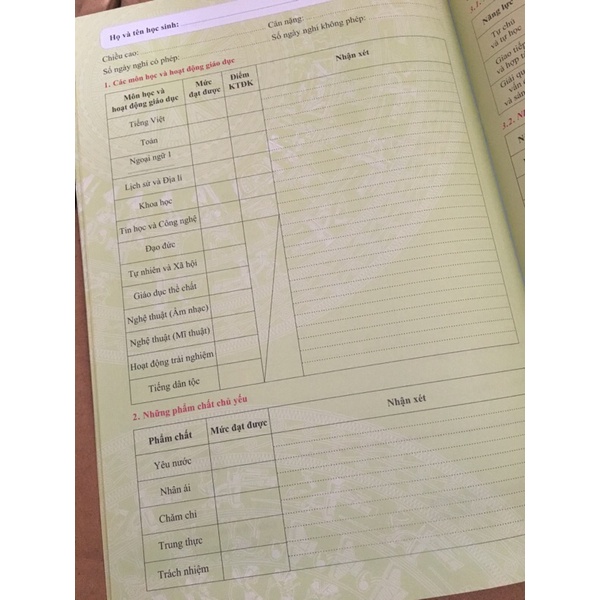 Họ và tên học sinh:
Chiều cao:
Cân nặng:
Số ngày nghỉ có phép:
Số ngày nghỉ không phép:
1. Các môn học và hoạt động giáo dục
Môn học và hoạt động giáo dục
Mức đạt được
Điểm KTĐK
Nhận xét
Tiếng Việt
Toán
Ngoại ngữ 1
Lịch sử và Địa lí
Khoa học
Tin học và Công nghệ
Đạo đức
Tự nhiên và Xã hội
Giáo dục thể chất
Nghệ thuật (Âm nhạc)
Nghệ thuật (Mĩ thuật)
Hoạt động trải nghiệm
Tiếng dân tộc
2. Những phẩm chất chủ yếu
Phẩm chất
Mức đạt được
Nhận xét
Yêu nước
Nhân ái
Chăm chỉ
Trung thực
Trách nhiệm
3.1.
Năng lực
Tự chủ
và tự học
Giao tiếp
và hợp
Giải qu
vấn
và sán
3.2. N